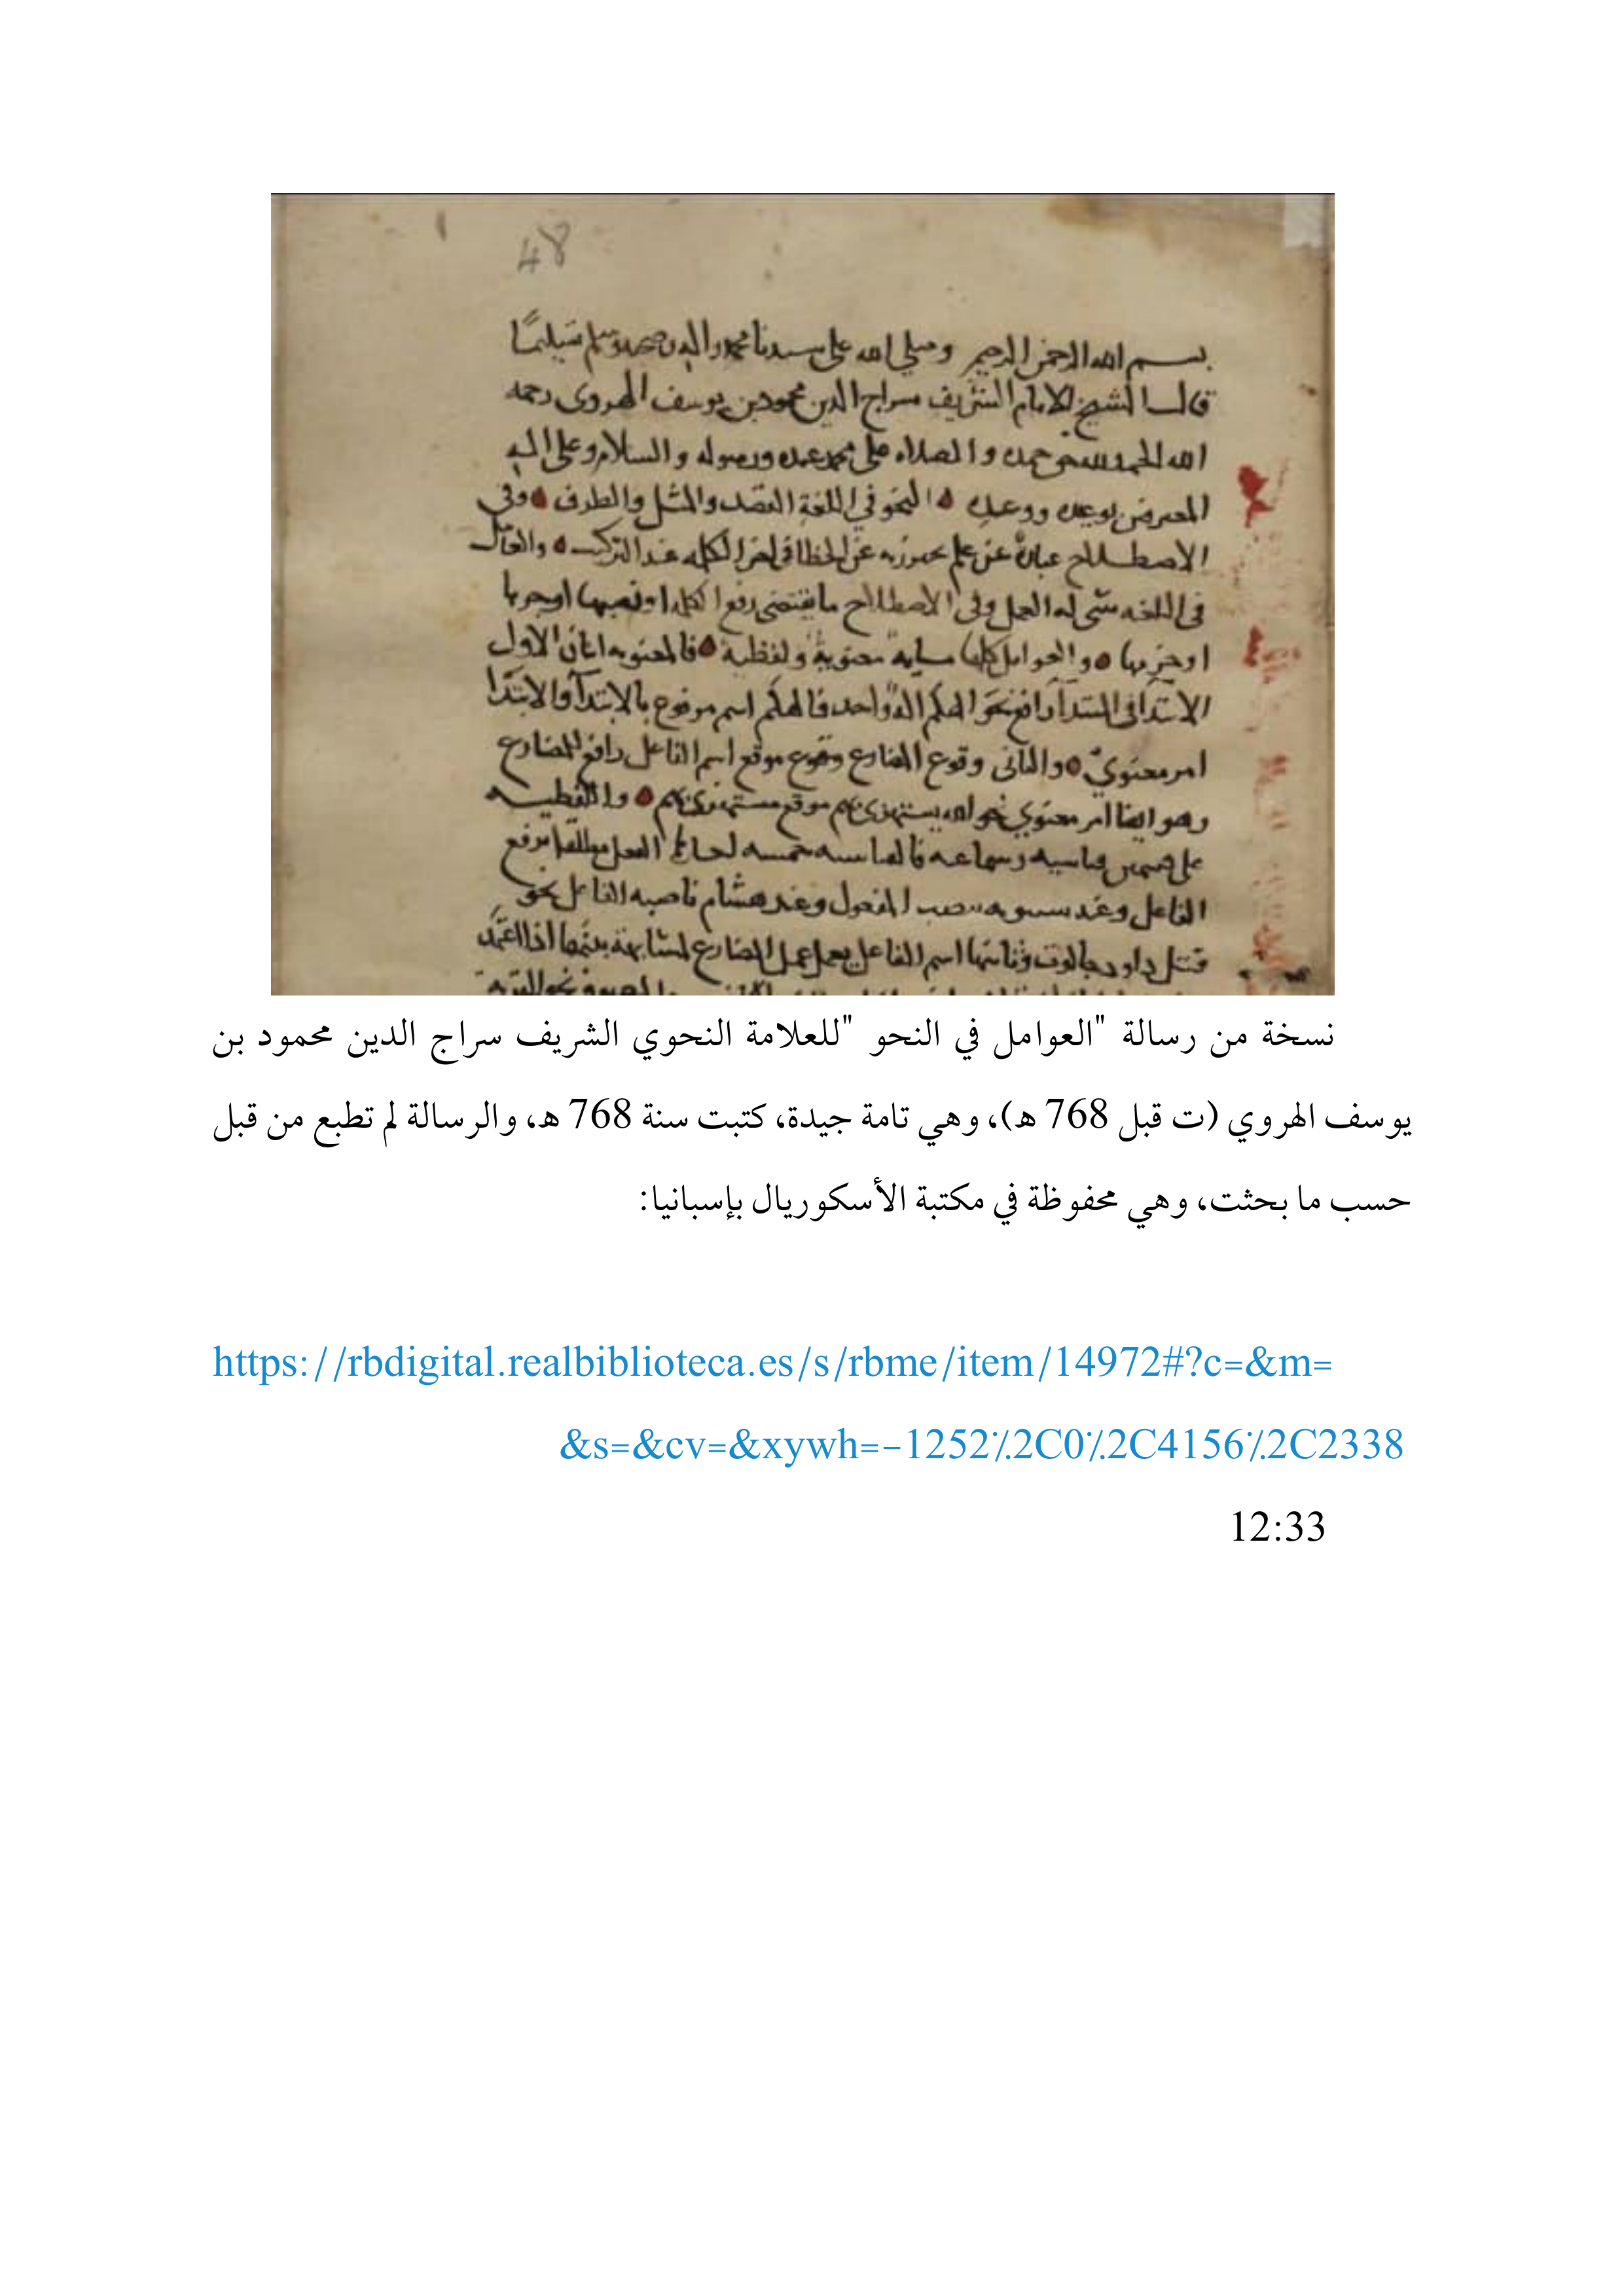 48
بسم الله الرحمن الرحيم وصلى الله على سيدنا محمد واله وصحبه وسلم تسليمًا
قال الشيخ الامام الشريف سراج الدين محمود بن يوسف الهروى رحمه
الله الحمد لله حق حمده والصلاه على محمد عبده ورسوله والسلام وعلى اله
بوعده ووعيده النحو في اللغة القصد والمثل والطرف وفي
الاصطلاح عبارة عن علم عن الخطا فى اخر الكلمه عند التركيب والعامل
فى اللغه شى له العمل وفى الاصطلاح ما يقتضى رفع الكلمة او نصبها او جرها
او جزمها والعوامل كلها مايه معنوية ولفظية فالمعنويه اثنان الاول
الابتدا فى المبتدأ رافع نحو الهكم اله واحد فالهكم اسم مرفوع بالابتدآ والابتدا
امر معنويٌ والثانى وقوع المضارع وقوع موقع اسم الفاعل رافع للمضارع
وهو ايضا امر معنوي نحو الله يستهزئ بهم موقع مستهزئ بهم واللفظيه
على قسمين قياسيه وسماعيه فالقياسيه خمسه احداها الفعل مطلقا يرفع
الفاعل وعند سيبويه ينصب المفعول وعند هشام ناصبه الفاعل نحو
قتل داود جالوت وثانيها اسم الفاعل يعمل عمل المضارع لمشابهة بينهما اذا اعتمد
نسخة من رسالة "العوامل في النحو "للعلامة النحوي الشريف سراج الدين محمود بن
يوسف الهروي (ت قبل 768 ه)، وهي تامة جيدة، كتبت سنة 768 ه، والرسالة لم تطبع من قبل
حسب ما بحثت، وهي محفوظة في مكتبة الأسكوريال بإسبانيا:
https://rbdigital.realbiblioteca.es/s/rbme/item/14972#?c=&m=
&s=&cv=&xywh=-1252%2C0%2C4156%2C2338
12:33